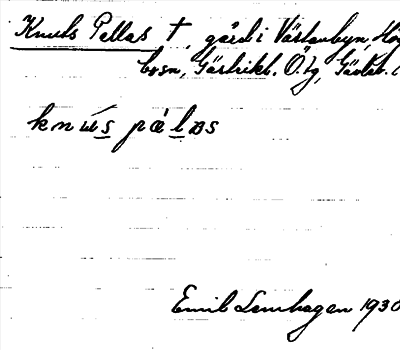 Knuts Pellas †, gård i Västanbyn, Hög
bosn, Gästrikl. Ö. tg, Gävleb. l
knɯs pälas
Emil Lenhagen 1930